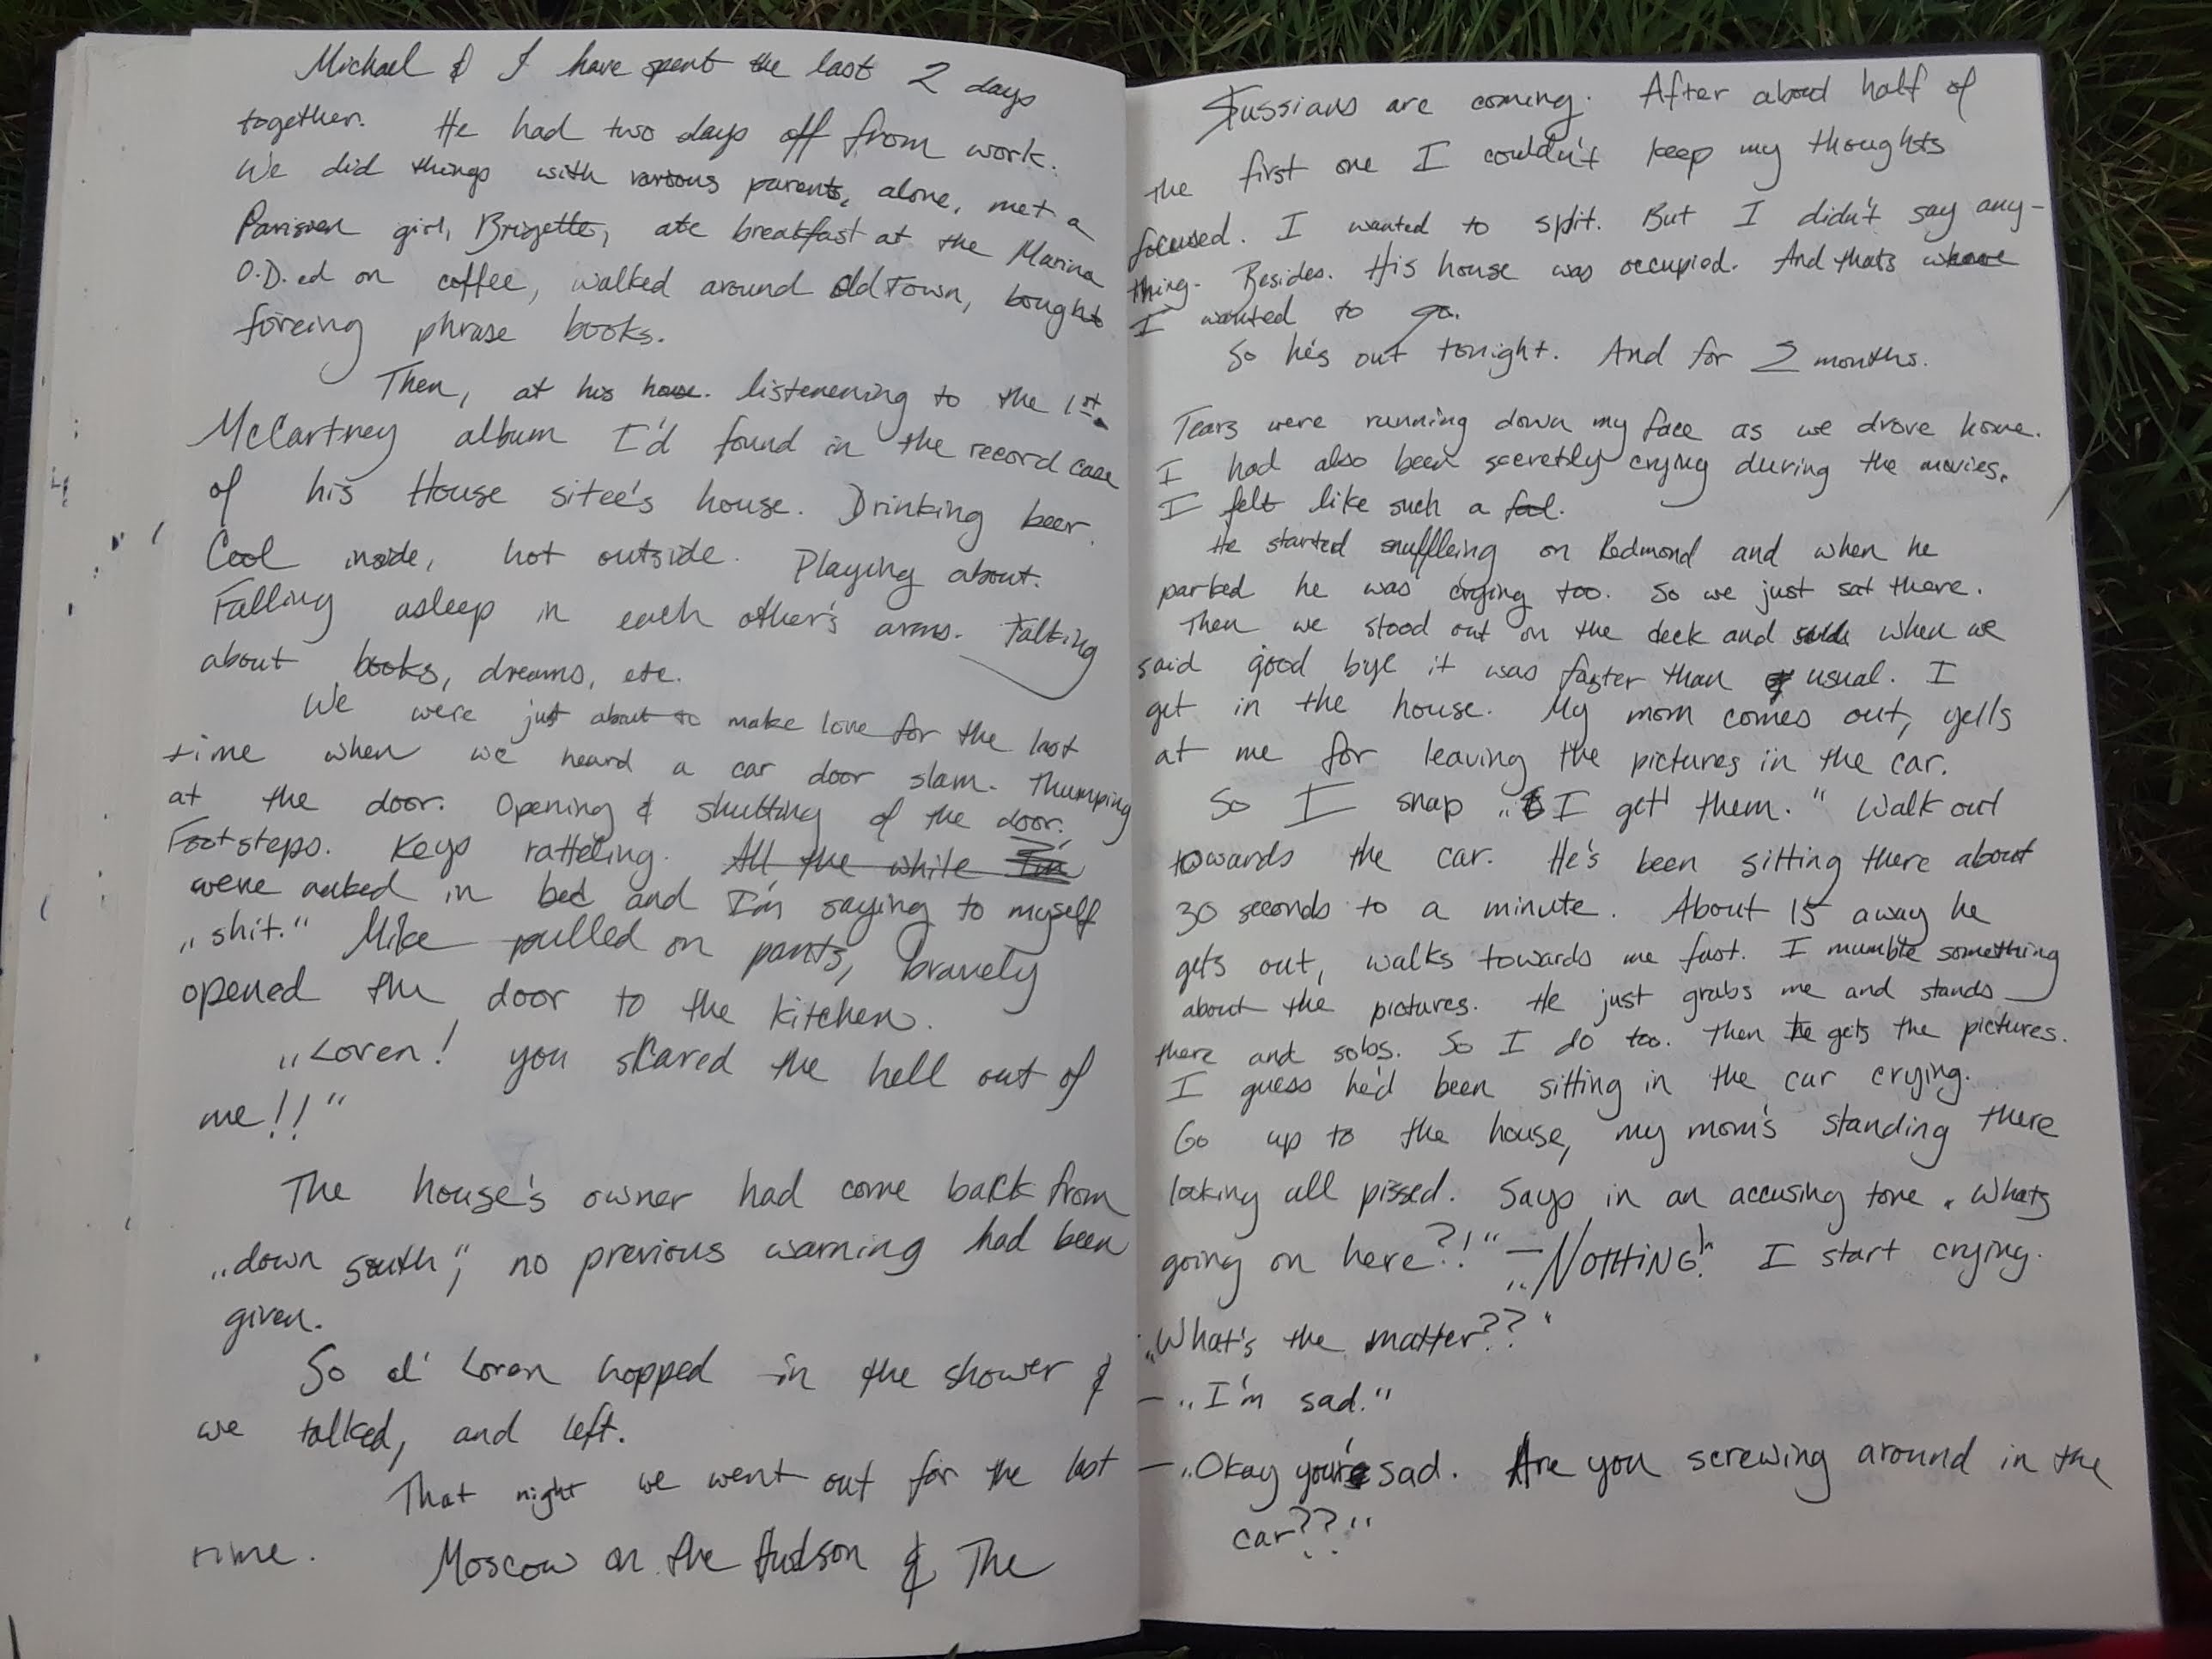 Michael & I have spent the last 2 days
together. He had two days off from work.
We did things with various parents, alone, met a
Parisien girl, Brigette, ate breakfast at the Marina
O.D.ed on coffee, walked around Old Town, bought
foreing phrase books.
Then, at his house. listenening to the 1st
McCartney album I'd found in the record case
of his House sitee's house. Drinking beer.
Cool inside, hot outside. Playing about.
Falling asleep in each other's arms. Talking
about books, dreams, etc.
We were just about to make love for the last
time when we heard a car door slam. Thumping
at the door. Opening & shutting of the door.
Footsteps. Keys ratteling. All the while I'm
were naked in bed and I'm saying to myself
„shit.“ Mike pulled on pants, bravely
opened the door to the kitchen.
„Loren! you scared the hell out of
me!!“
The house's owner had come back from
„down south“, no previous warning had been
given.
So ol' Loren hopped in the shower &
we talked, and left.
That night we went out for the last
time. Moscow on the Hudson & The
Russians are coming. After about half of
the first one I couldn't keep my thoughts
focused. I wanted to split. But I didn't say any-
thing. Besides. His house was occupied. And thats where
I wanted to go.
So he's out tonight. And for 2 months.
Tears were running down my face as we drove home.
I had also been secretly crying during the movies.
I felt like such a fool.
He started snuffleing on Redmond and when he
parked he was crying too. So we just sat there.
Then we stood out on the deck and when we
said good bye it was faster than usual. I
get in the house. My mom comes out, yells
at me for leaving the pictures in the car.
So I snap „I get them.“ Walk out
towards the car. He's been sitting there about
30 seconds to a minute. About 15 away he
gets out, walks towards me fast. I mumble something
about the pictures. He just grabs me and stands
there and sobs. So I do too. Then he gets the pictures.
I guess he'd been sitting in the car crying.
Go up to the house, my mom's standing there
looking all pissed. Says in an accusing tone „Whats
going on here?!“ – „NOTHING!“ I start crying.
„What's the matter??“
– „I'm sad.“
– „Okay you're sad. Are you screwing around in the
car??“